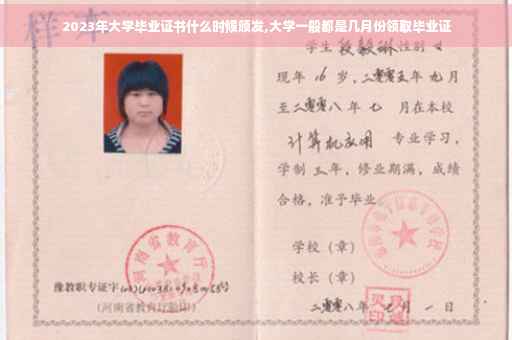 2023年大学毕业证书什么时候颁发,大学一般都是几月份领取毕业证
样本
学生段毅琳性别女
现年16岁,二零零五年九月
至二零零八年七月在本校
计算机应用 专业学习,
学制三年,修业期满,成绩
合格,准予毕业
学校(章)
校长(章)
河南省教育厅
豫教职专证字
(河南省教育厅验印)
二零零八年七月一日